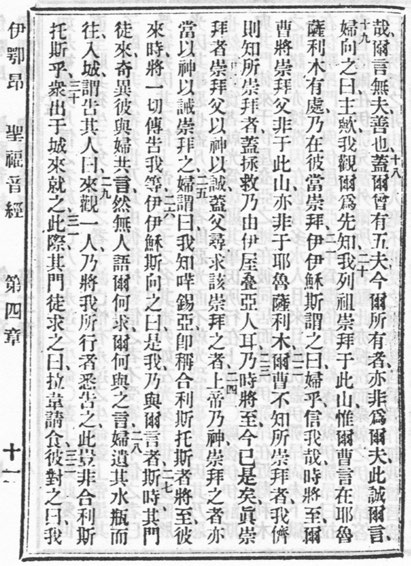 哉爾言無夫善也十八蓋爾曾有五夫今爾所有者亦非爲爾夫此誠爾言
十九婦向之曰主歟我觀爾爲先知二十我列祖崇拜于此山惟爾曹言在耶魯
薩利木有處乃在彼當崇拜二一伊伊穌斯謂之曰婦乎信我哉時將至爾
曹將崇拜父非于此山亦非于耶魯薩利木二二爾曹不知所崇拜者我儕
則知所崇拜者蓋拯救乃由伊屋疊亞人耳二三乃時將至今已是矣眞崇
拜者崇拜父以神以誠蓋父尋求該崇拜之者二四上帝乃神崇拜之者亦
當以神以誠崇拜之二五婦謂曰我知哶錫亞卽稱合利斯托斯者將至彼
來時將一切傳告我等二六伊伊穌斯向之曰是我乃與爾言者二七斯時其門
徒來奇異彼與婦共言然無人語爾何求爾何與之言二八婦遺其水瓶而
往入城謂告其人曰二九來觀一人乃將我所行者悉告之此豈非合利斯
托斯乎三十衆出于城來就之三一此際其門徒求之曰拉韋請食三二彼對之曰我
伊鄂昂 聖福音經 第四章 十一